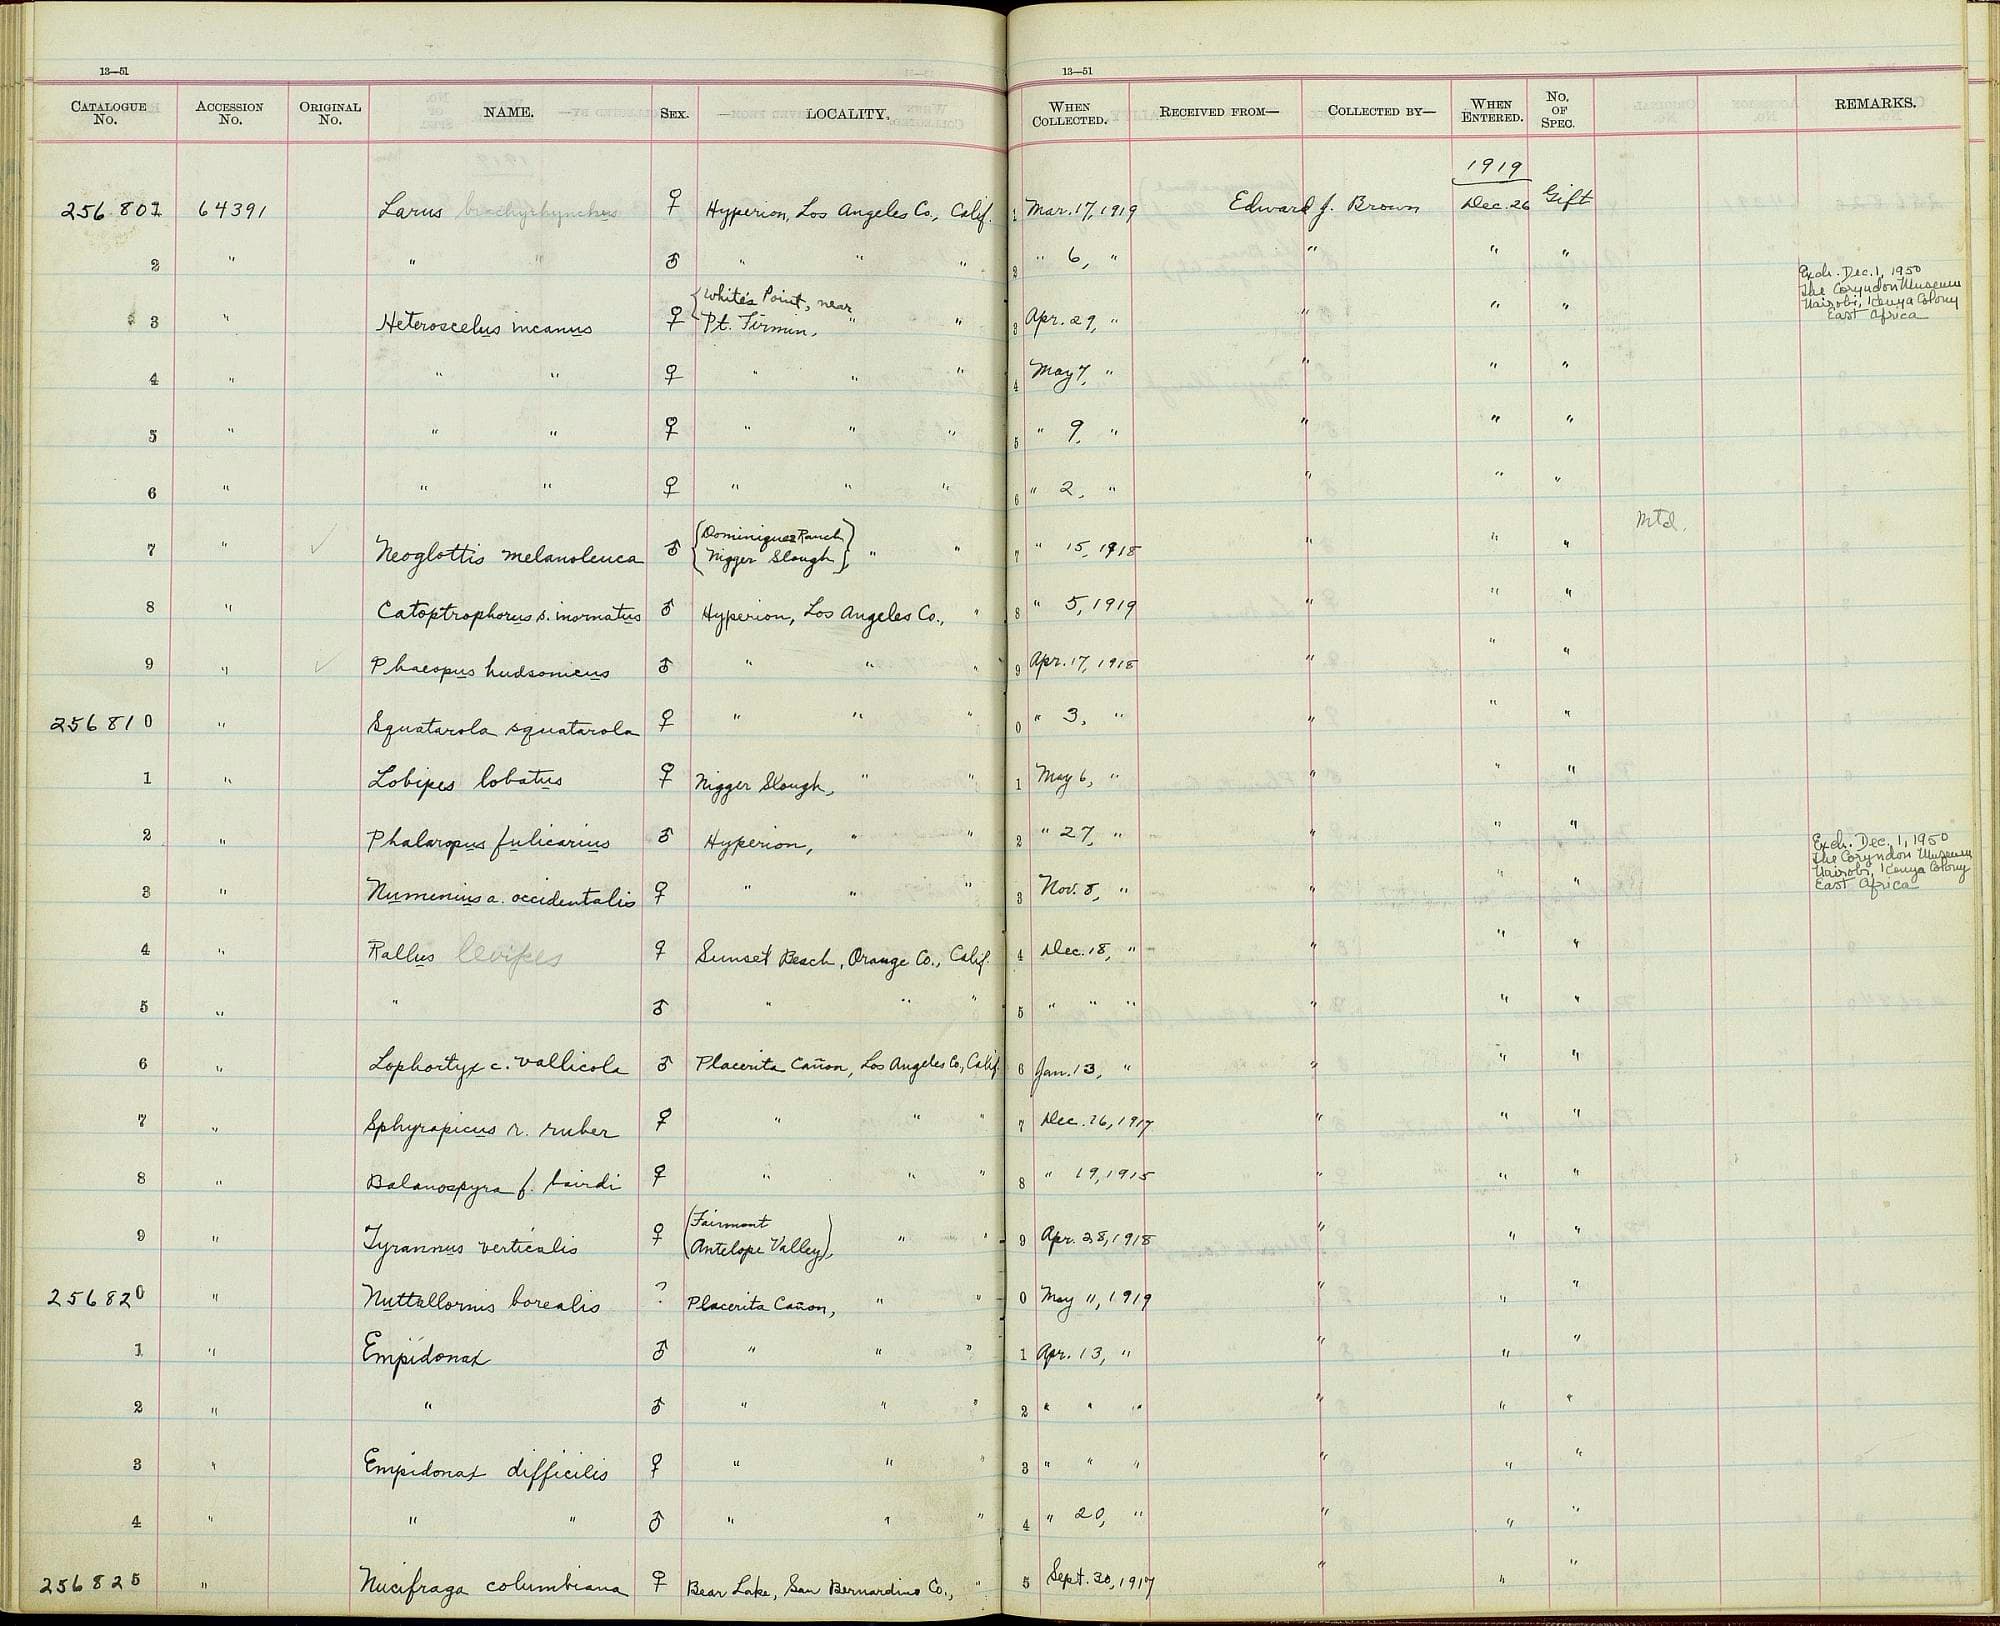 13—51
CATALOGUE No. ACCESSION No. ORIGINAL No. NAME. SEX. LOCALITY.
13—51
WHEN COLLECTED. RECEIVED FROM— COLLECTED BY— WHEN ENTERED. NO. OF SPEC. REMARKS.
1919
256801 64391 Larus brachyrhynchus ♀ Hyperion, Los Angeles Co., Calif. 1 Mar. 17, 1919 Edward J. Brown Dec. 26 Gift
2 " " " ♂ " " " 2 " 6, " " " "
Exch. Dec. 1, 1950
The Coryndon Museum
Nairobi, Kenya Colony
East Africa
3 " Heteroscelus incanus ♀ { White's Point, near
Pt. Firmin, " " 3 Apr. 29, " " " "
4 " " " ♀ " " " 4 May 7, " " " "
5 " " " ♀ " " " 5 " 9, " " " "
6 " " " ♀ " " " 6 " 2, " " " "
7 " ✓ Neoglottis melanoleuca ♂ { Dominiguez Ranch
Nigger Slough }, " " 7 " 15, 1918 " " " Mtd.
8 " Catoptrophorus s. inornatus ♂ Hyperion, Los Angeles Co., " 8 " 5, 1919 " " "
9 " ✓ Phaeopus hudsonicus ♂ " " " 9 Apr. 17, 1918 " " "
256810 " Squatarola squatarola ♀ " " " 0 " 3, " " " "
1 " Lobipes lobatus ♀ Nigger Slough, " " 1 May 6, " " " "
2 " Phalaropus fulicarius ♂ Hyperion, " " 2 " 27, " " " "
Exch. Dec. 1, 1950
The Coryndon Museum
Nairobi, Kenya Colony
East Africa
3 " Numenius a. occidentalis ♀ " " " 3 Nov. 8, " " " "
4 " Rallus levipes ♀ Sunset Beach, Orange Co., Calif. 4 Dec. 18, " " " "
5 " " ♂ " " " 5 " " " " " "
6 " Lophortyx c. vallicola ♂ Placerita Cañon, Los Angeles Co., Calif. 6 Jan. 13, " " " "
7 " Sphyrapicus r. ruber ♀ " " " 7 Dec. 26, 1917 " " "
8 " Balanospyra f. bairdi ♀ " " " 8 " 19, 1915 " " "
9 " Tyrannus verticalis ♀ (Fairmont
Antelope Valley), " " 9 Apr. 28, 1918 " " "
256820 " Nuttallornis borealis ? Placerita Cañon, " " 0 May 11, 1919 " " "
1 " Empidonax ♂ " " " 1 Apr. 13, " " " "
2 " " ♂ " " " 2 " " " " " "
3 " Empidonax difficilis ♀ " " " 3 " " " " " "
4 " " " ♂ " " " 4 " 20, " " " "
256825 " Nucifraga columbiana ♀ Bear Lake, San Bernardino Co., " 5 Sept. 30, 1917 " " "